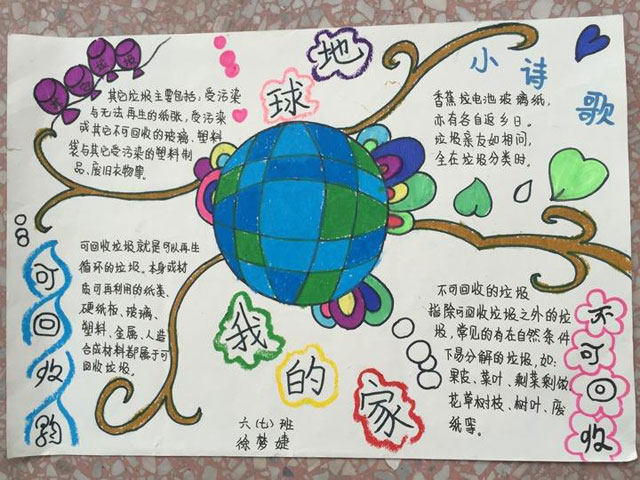 地球
我的家
小诗歌
其它垃圾主要包括：受污染
与无法再生的纸张、受污染
或其它不可回收的玻璃、塑料
袋与其它受污染的塑料制
品、废旧衣物等。
香蕉垃电池玻璃纸，
亦有各自返乡日。
垃圾亲友如相问，
全在垃圾分类时。
可回收
可回收垃圾就是可以再生
循环的垃圾。本身或材
质可再利用的纸类、
硬纸板、玻璃、
塑料、金属、人造
合成材料都属于可
回收垃圾。
不可回收的垃圾
指除可回收垃圾之外的垃
圾，常见的有在自然条件
下易分解的垃圾，如：
果皮、菜叶、剩菜剩饭
花草树枝、树叶、废
纸等。
不可回收
六(七)班
徐梦婕